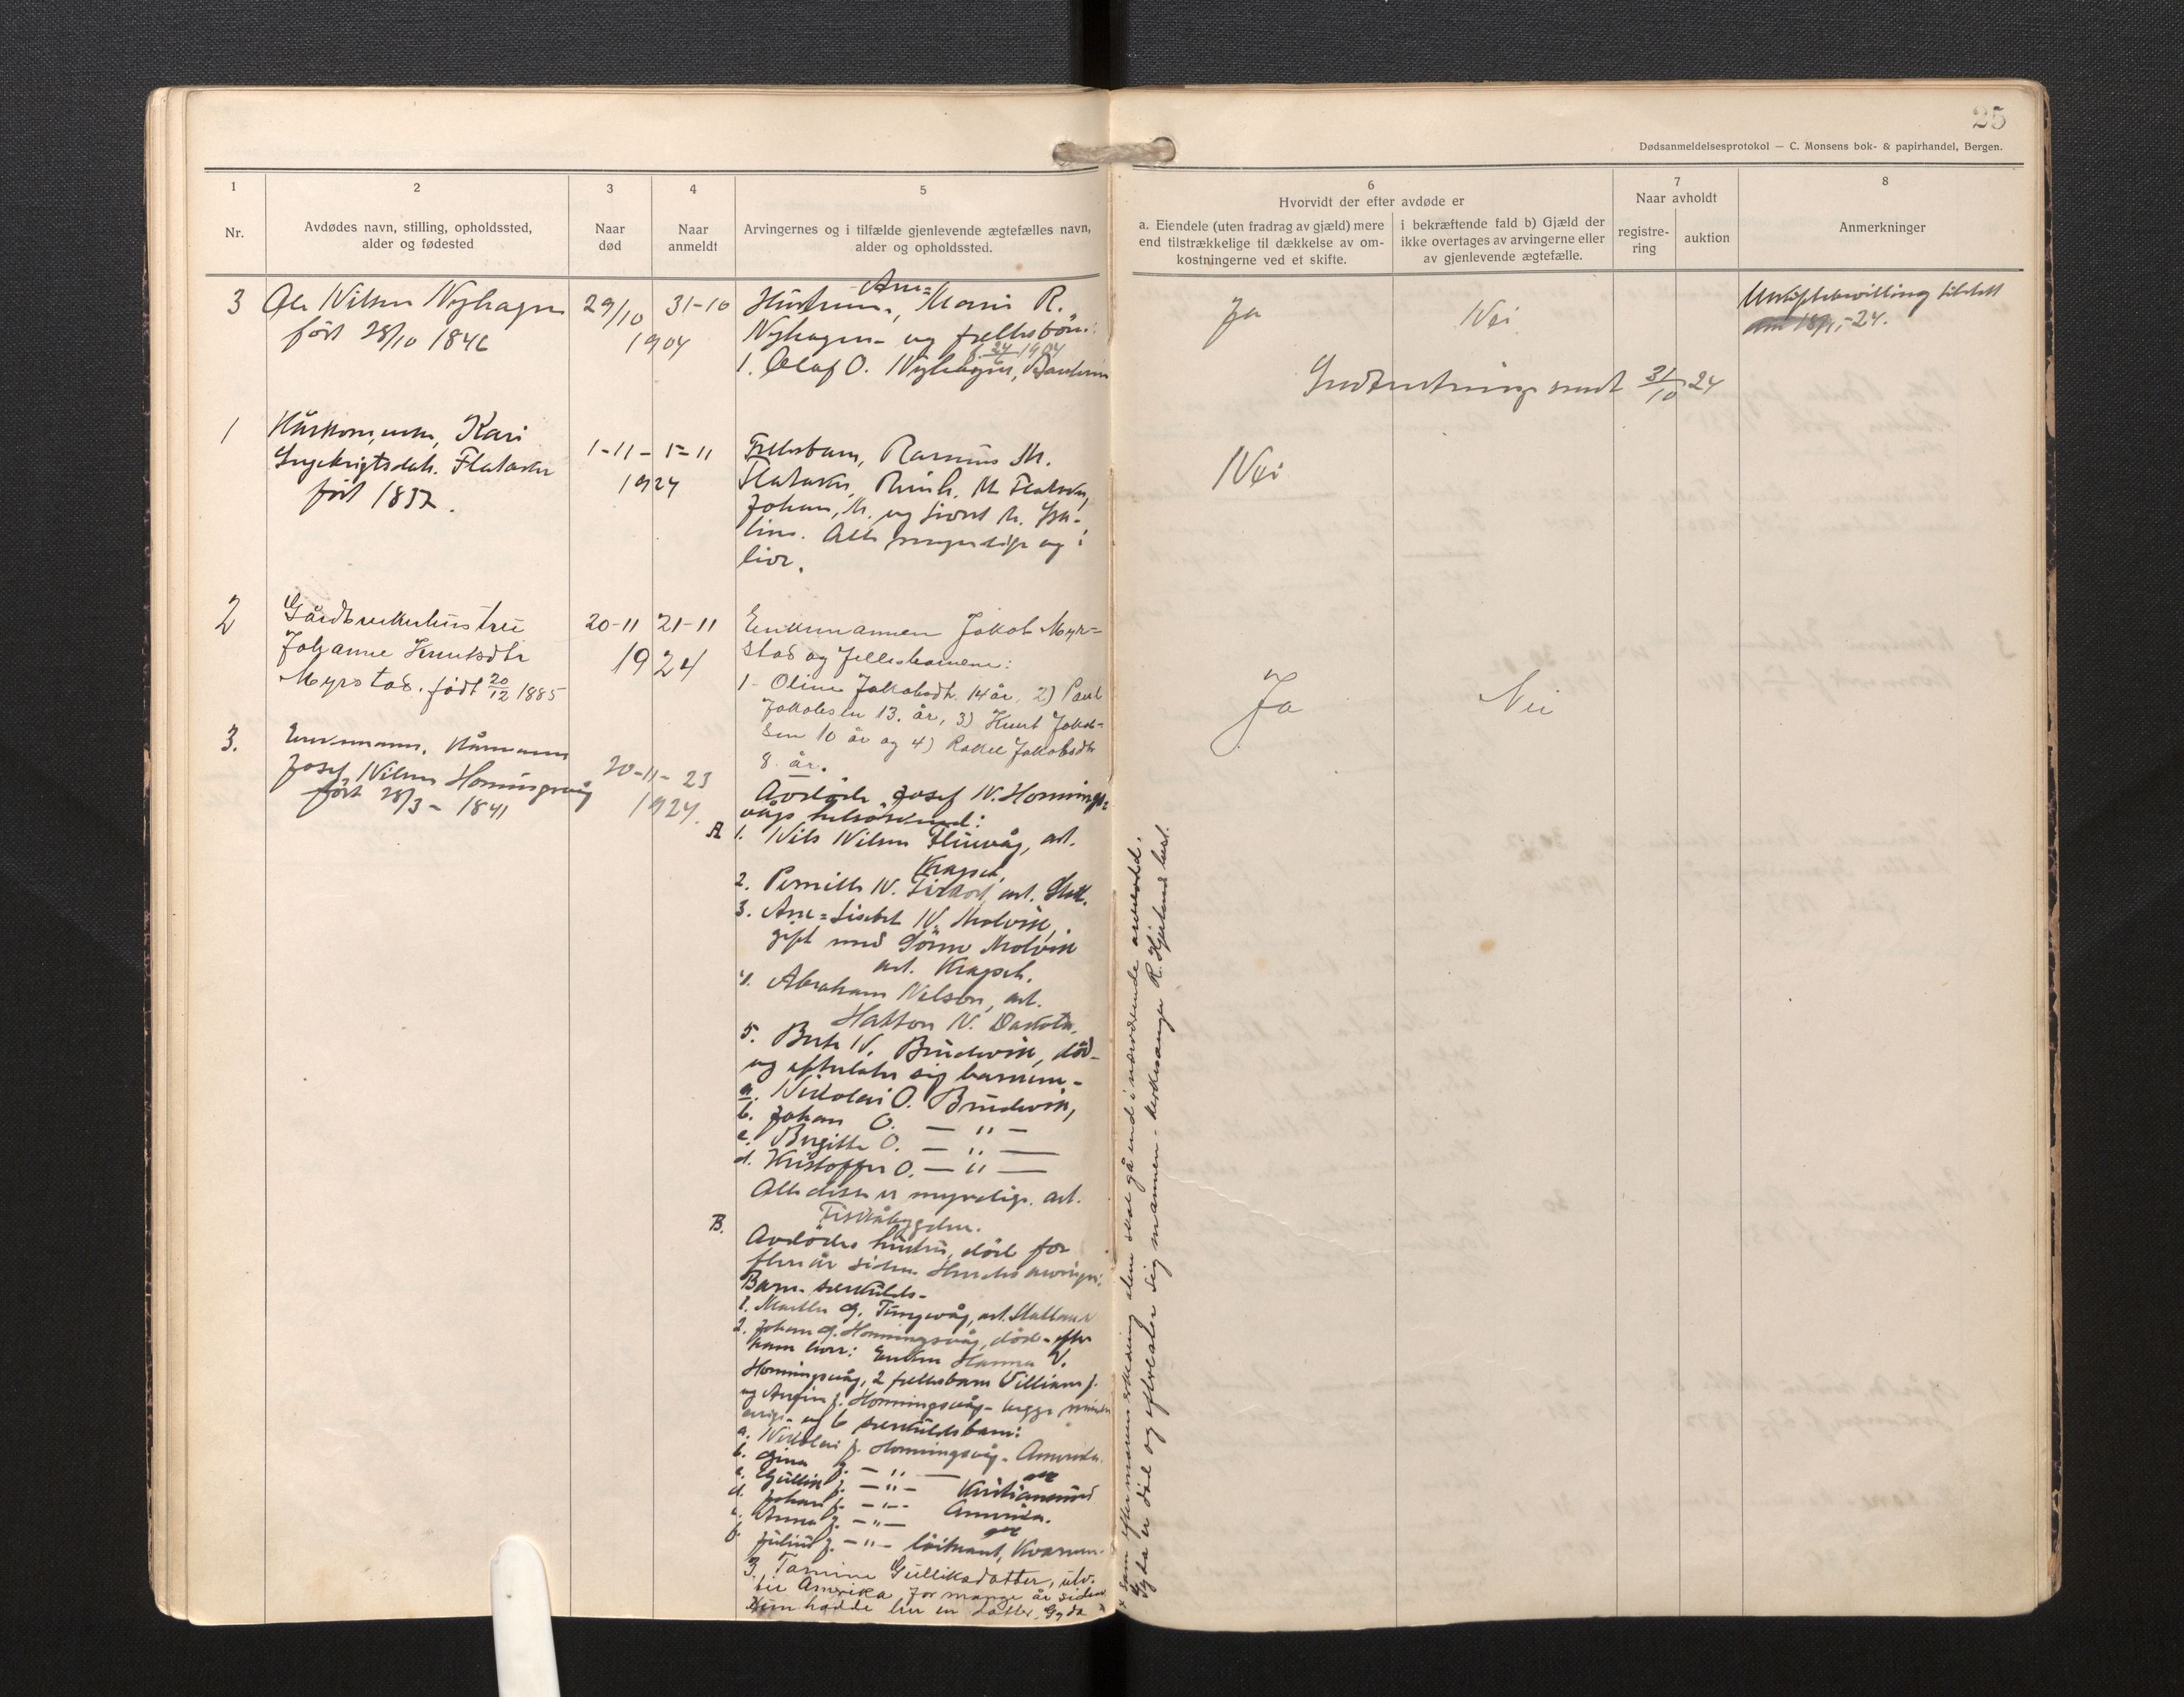 25
Dødsanmeldelsesprotokol — C. Monsens bok- & papirhandel, Bergen.
1
Nr.
2
Avdødes navn, stilling, opholdssted,
alder og fødested
3
Naar
død
4
Naar
anmeldt
5
Arvingernes og i tilfælde gjenlevende ægtefælles navn,
alder og opholdssted.
6
Hvorvidt der efter avdøde er
a. Eiendele (uten fradrag av gjæld) mere
end tilstrækkelige til dækkelse av om-
kostningerne ved et skifte.
i bekræftende fald b) Gjæld der
ikke overtages av arvingerne eller
av gjenlevende ægtefælle.
7
Naar avholdt
registre-
ring
auktion
8
Anmerkninger
3
Ole Nilsen Nyhagen
født 28/10 1846
29/10 31-10
1904
Ane=
Hustruen, Marie R.
Nyhagen - og fellesbörn:
1. Olaf O. Nyhagen,
Ja
Nei
Uskiftebevilling tildelt
18/11-24.
31/10 24
1
Kari
Ingebrigtsdatr. Flataker
født 1837.
1-11 - 1-11
1924
Fellesbarn, Rasmus M.
Flataker,
Johan, M. og Sivert M.
Alle myndige og i
live.
Nei
2
Gårdbrukerhustru
Johanne Knutsdtr
Myrstad. født 20/12 1885
20-11 21-11
1924
Enkemannen Jakob Myr=
stad og fellesbarnene:
1- Oline Jakobsdtr. 14 år, 2) Paul
Jakobsen 13. år, 3) Knut Jakob-
sen 10 år og 4) Rakel Jakobsdtr
8 år.
Ja
Nei
3.
Enkemann, Kårmann
Josef Nilsen Honningsvåg
født 28/3 - 1841
20-11- 23
1924.
Avdøde Josef N. Honnings=
vågs helsöskend:
A
1. Nils Nilsen Fluevåg, adr.
2. Pernille N. adr.
3. Ane=Lisbet N. Molvik,
gift med Molvik
adr.
4. Abraham Nilson, adr.
Hatton N. Dakota.
5. Berte N. Brudevik, död-
og efterlater sig barnene-
a. Nikolai O. Brudevik,
b. Johan O. — " —
c. Birgitte O. — " —
d. Kristoffer O. — " —
Alle disse er myndige. adr.
Fiskåbygden.
B.
Avdödes hustru, död for
flere år siden. Hendes arvinger:
Barn- særkulds-
1. Marthe G. Tungevåg, adr. Statland
2. Johan G. Honningsvåg, död - efter
ham lever: Enken Hanna V.
Honningsvåg, 2 fellesbarn Villiam J.
og J. Honningsvåg - begge
og 6 særkuldsbarn:
a. Nikolai J. Honningsvåg - Amerika.
b. Gina J. — " —
c. Gullik J. — " — Kristiansund
d. Johan J. — " — Amerika.
e. Anna J. — " —
f. Julius J. — " — löitnant,
3. Tomine Gulliksdatter, utv.
til Amerika for mange år siden
Hun hadde her en datter, Gyda x
x som eftermannens erklæring alene skal gå ind i nærværende arvefald.
Gyda er död og efterlater sig mannen - kirkesanger R. Hjertand